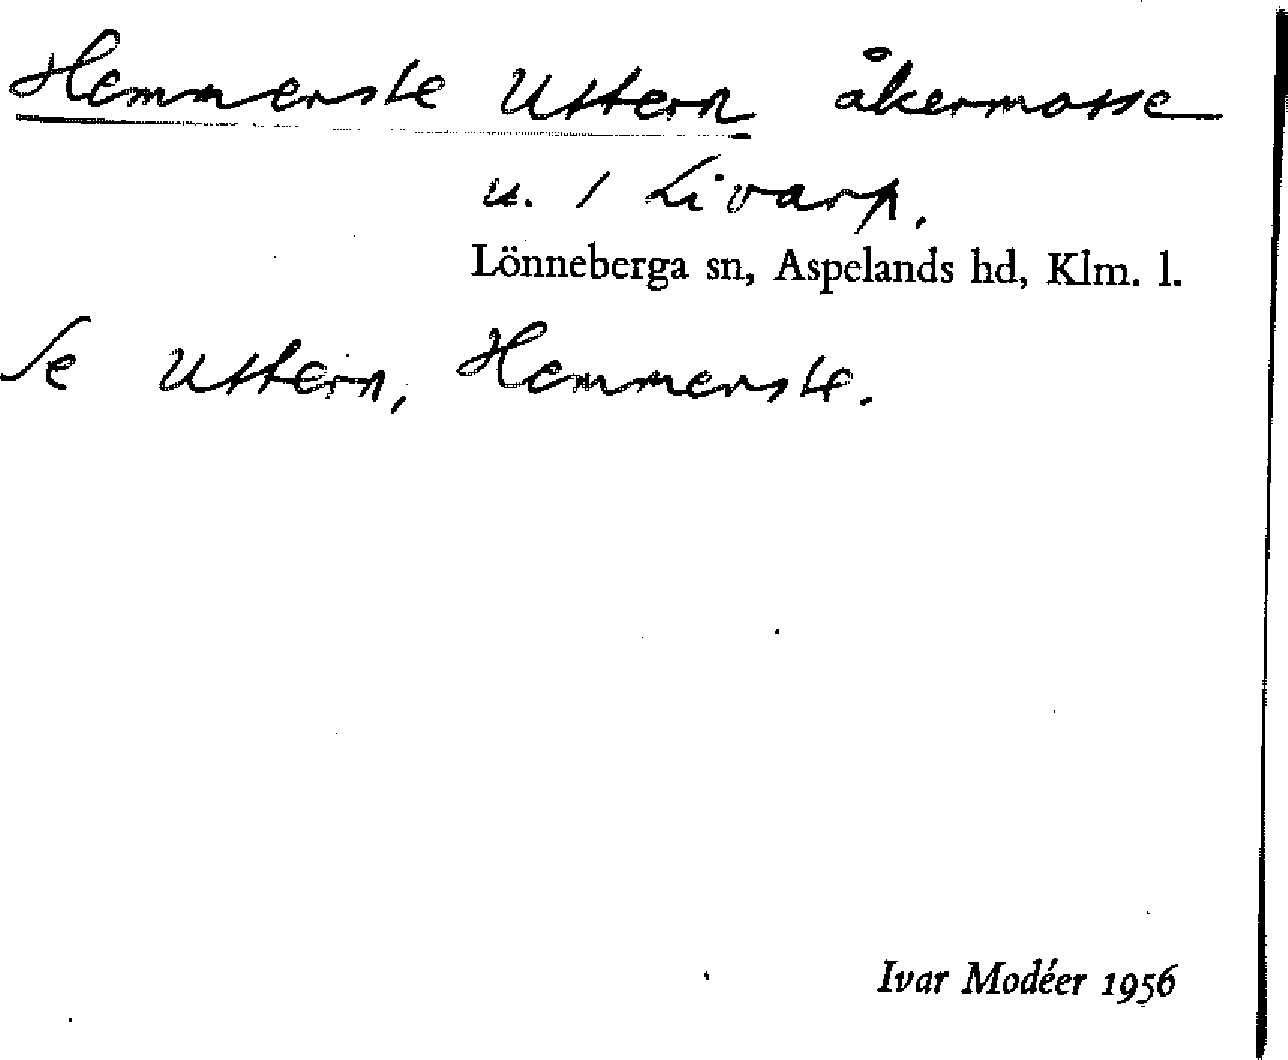 Hemmerste Uttern åkermosse
u. 1 Livarp.
Lönneberga sn, Aspelands hd, Klm. l.
Se Uttern, Hemmerste.
Ivar Modéer 1956